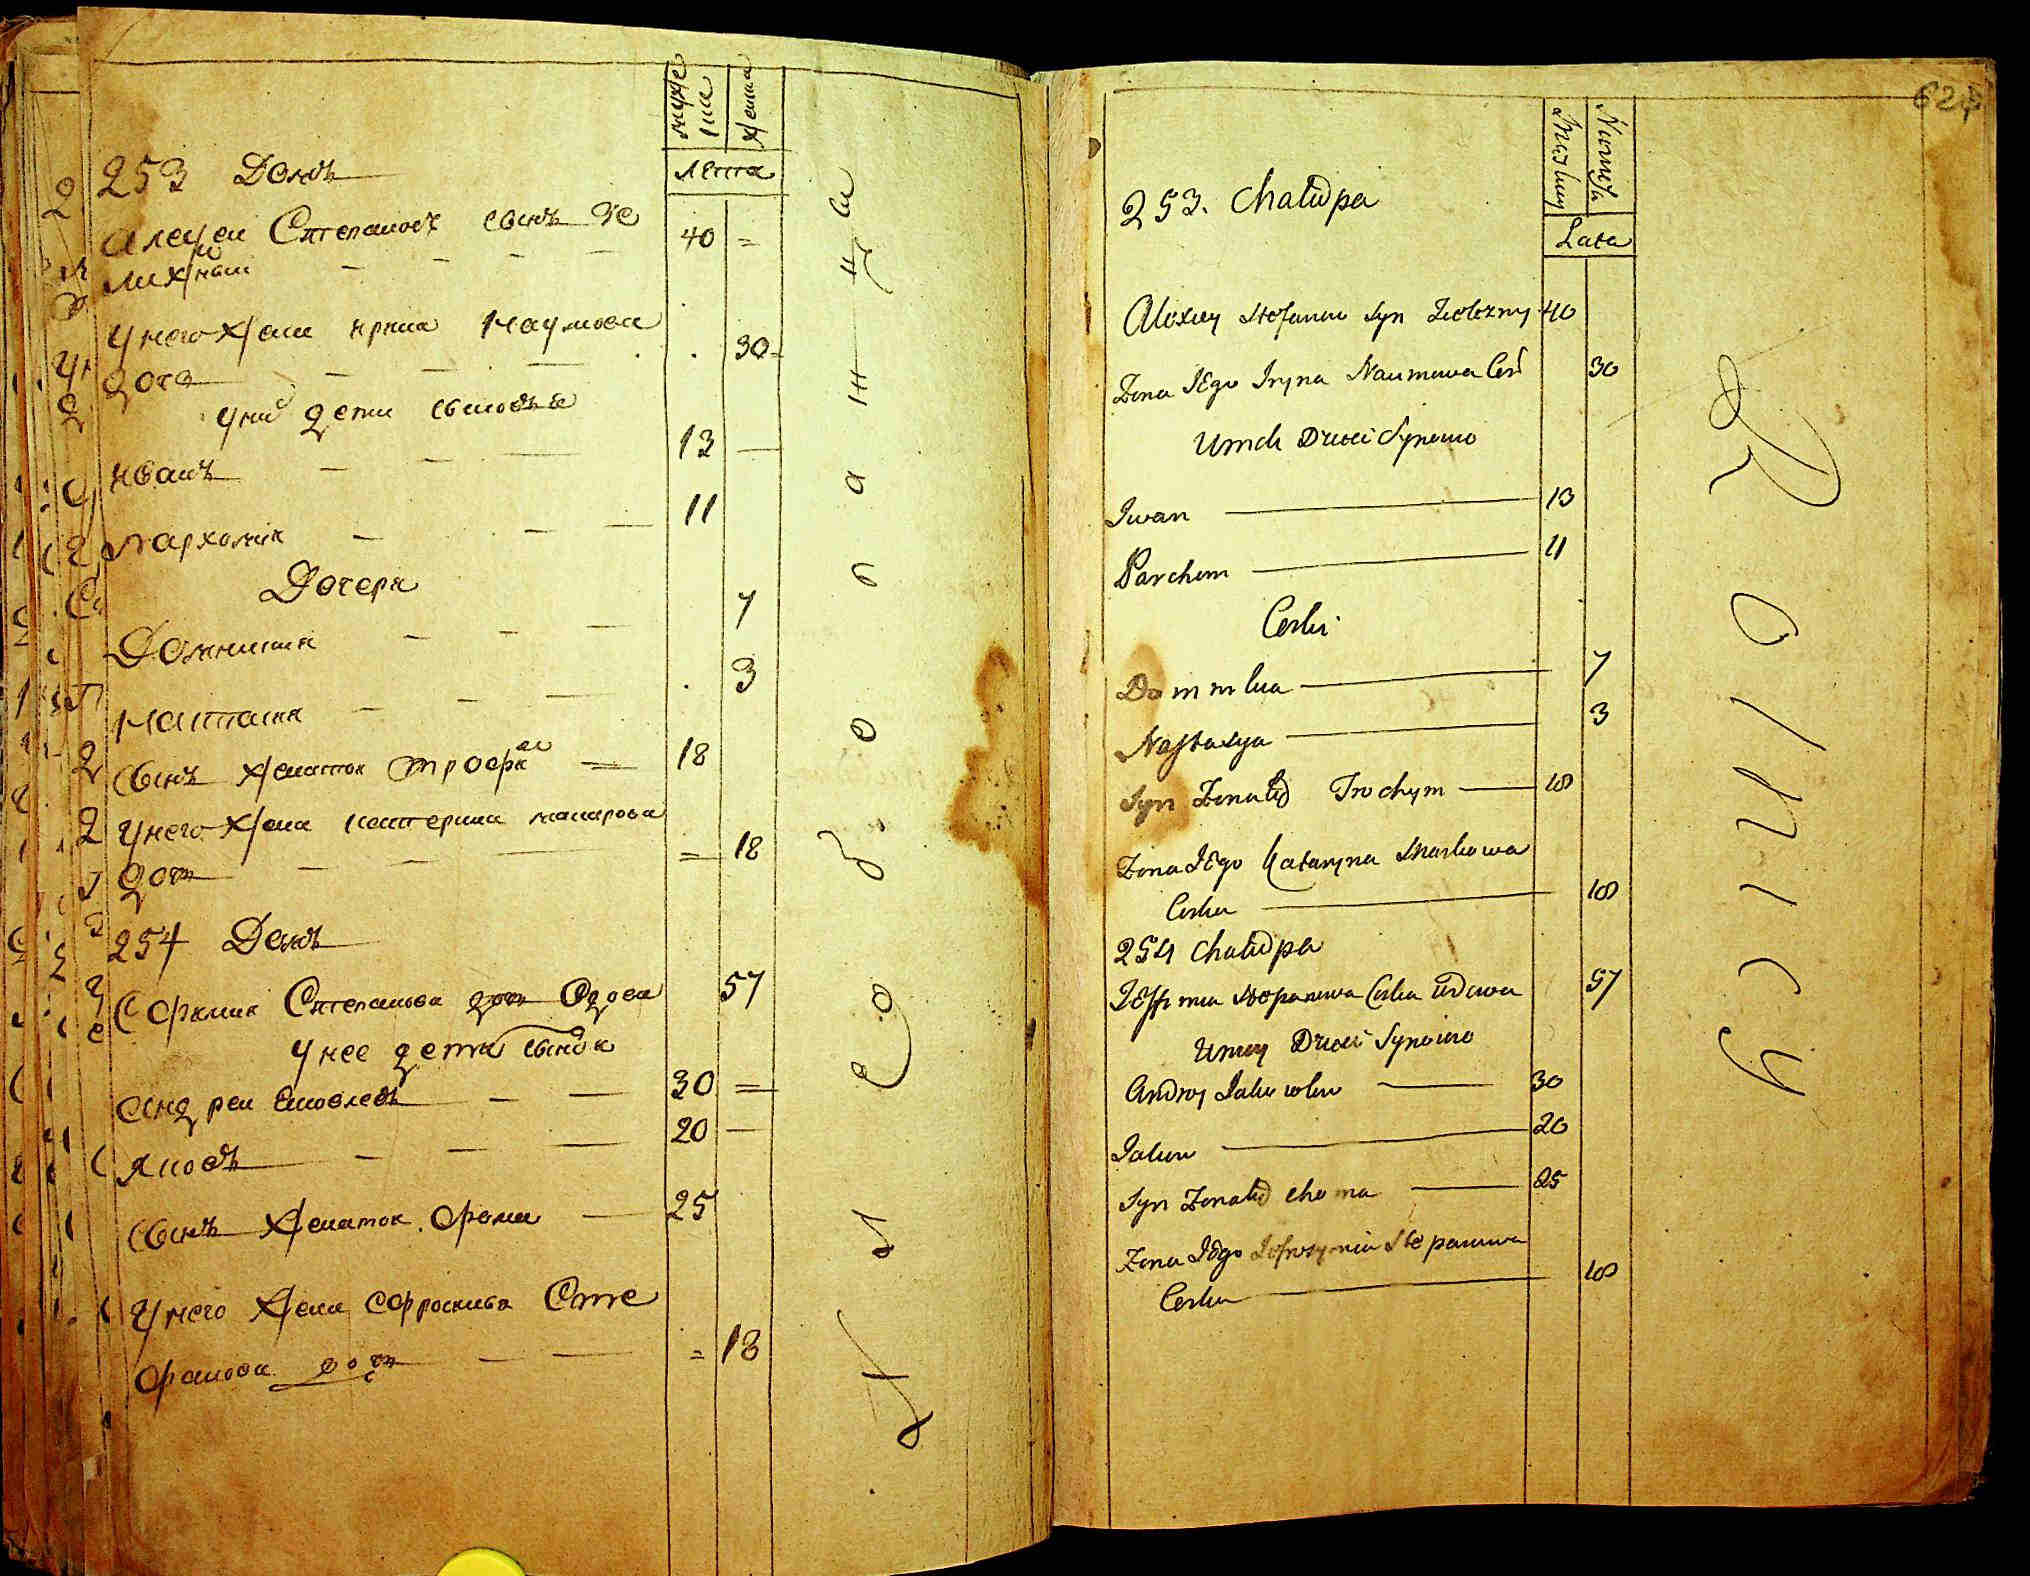 муже
ска
женска
лета
253 Домъ
Алеѯеи Степановъ сынъ Зе
лизны
40
У него жена Ирина Наумова
дочь
30
У них дети сыновья
Иванъ
13
Пархомъ
11
Дочери
Домникия
7
Настасия
3
Сынъ женатои Трофим
18
У него жена Катерина Макарова
дочь
18
254 Домъ
Софимия Степанова дочь вдова
57
У нее дети сынов
Андреи Яковлевъ
30
Яковъ
20
Сынъ женатои Фома
25
У него жена Ефросиния Сте
фанова дочь
18
Хлеборобница
Męskey
Niewis
Lata
253. Chałupa
Alexey Stefanow Syn Zielezny 40
Żona Iego Iryna Naumowa Cor 30
U nich Dzieci Synowie
Iwan 13
Parchom 11
Corki
Domnika 7
Nastasya 3
Syn Żonaty Trochym 18
Żona Iego Kataryna Markowa
Corka 18
254 Chałupa
Ieffimia Stepanowa Corka Wdowa 57
U niey Dzieci Synowie
Andrey Iakowlew 30
Iakow 20
Syn Żonaty Choma 25
Żona Iego Iefrosynia Stepanowa
Corka 18
Rolnicy